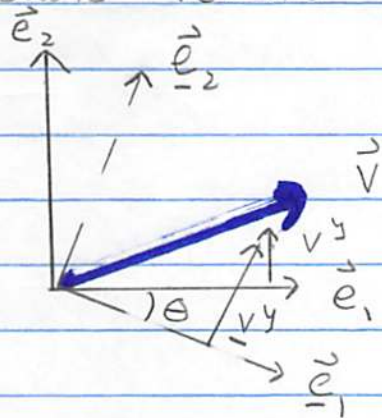 e⃗₂
e̲⃗₂
V⃗
vʸ
e⃗₁
θ
v̲ʸ
e̲⃗₁